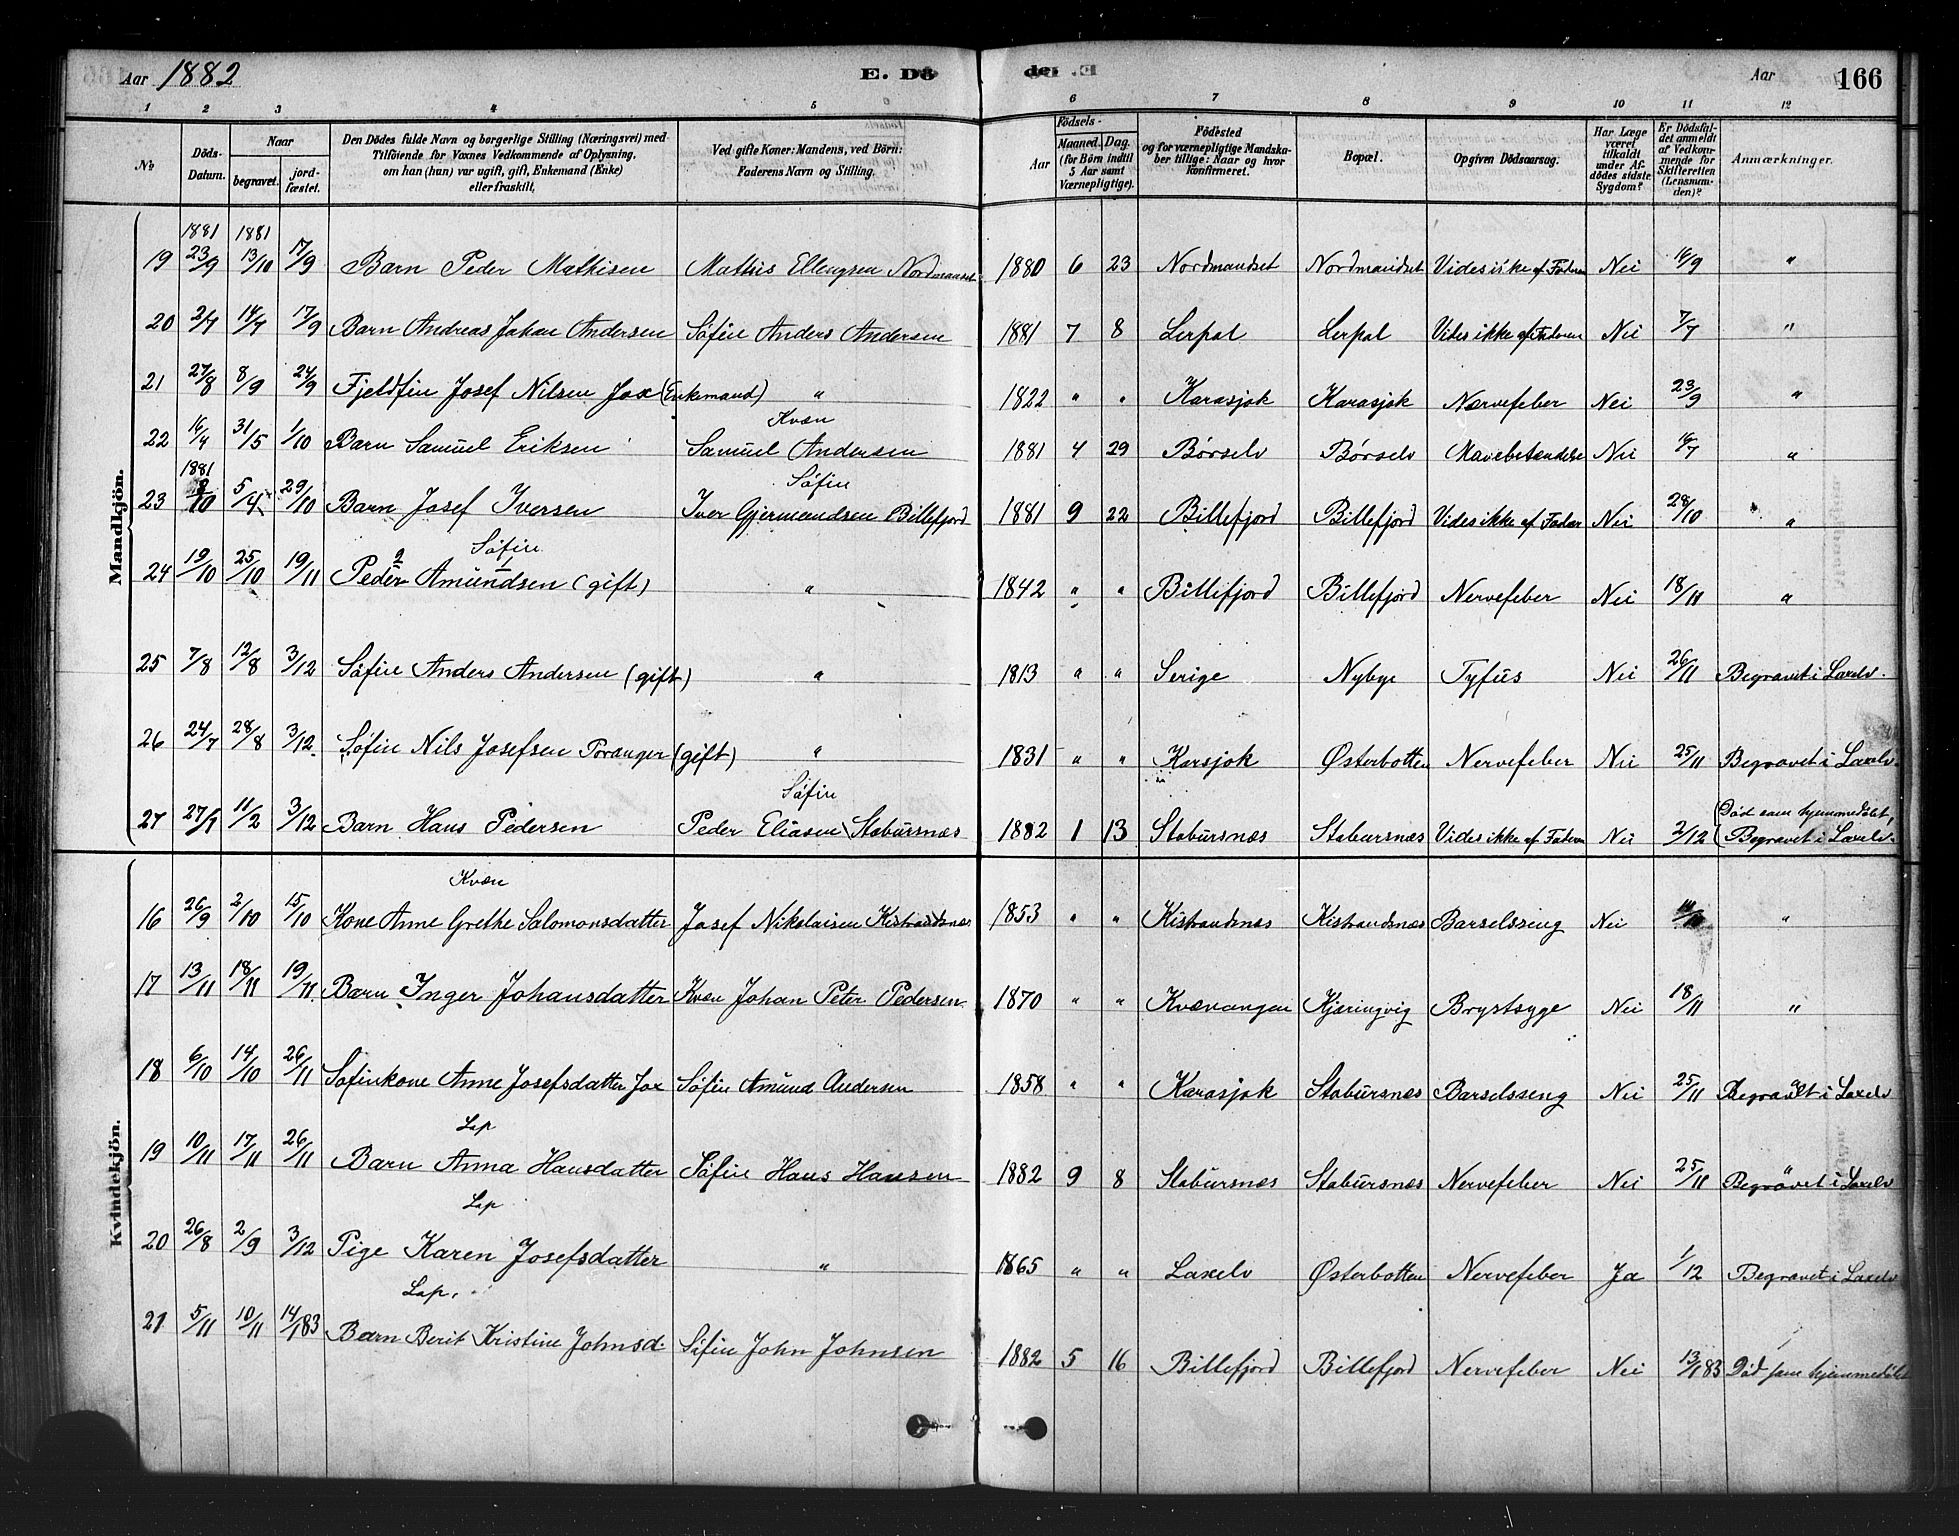 Aar 1882 E. Dö
der .E Aar 166
1 2 3 4 5 6 7 8 9 10 11 12
№ Döds-Datum. Naar begravet. jord-fæstet. Den Dödes fulde Navn og borgerlige Stilling (Næringsvei) med Tilföiende for Voxnes Vedkommende af Oplysning, om han (hun) var ugift, gift, Enkemand (Enke) eller fraskilt. Ved gifte Koner: Mandens, ved Börn: Faderens Navn og Stilling. Födsels- Aar Maaned. Dag. (for Börn indtil 5 Aar samt Værnepligtige). Födested og for værnepligtige Mandskaber tillige: Naar og hvor konfirmeret. Bopæl. Opgiven Dödsaarsag. Har Læge været tilkaldt under Afdödes sidste Sygdom? Er Dödsfaldet anmeldt af Vedkommende for Skifteretten (Lensmanden)? Anmærkninger.
Mandkjön.
1881 1881
19 23/9 13/10 17/9 Barn Peder Mathisen Mathis Ellengsen Nordmanset 1880 6 23 Nordmandset Nordmandset Vides ikke af Faderen Nei 16/9 "
20 2/7 14/7 17/9 Barn Andreas Johan Andersen Søfin Anders Andersen 1881 7 8 Lerpol Lerpol Vides ikke af Faderen Nei 7/7 "
21 27/8 8/9 24/9 Fjeldfin Josef Nilsen Jox (Enkemand) " 1822 " " Karasjok Karasjok Nervefeber Nei 23/9 "
Kvæn
22 16/4 31/5 1/10 Barn Samuel Eriksen Samuel Andersen 1881 4 29 Børselv Børselv Mavebetændelse Nei 16/7 "
1881 Søfin
23 5/4 29/10 Barn Josef Iversen Iver Gjermundsen Billefjord 1881 9 22 Billefjord Billefjord Vides ikke af Fader Nei 28/10 "
Søfin
24 19/10 25/10 19/11 Peder Amundsen (gift) " 1842 " " Billefjord Billefjord Nervefeber Nei 18/11 "
25 7/8 12/8 3/12 Søfin Anders Andersen (gift) " 1813 " " Serige Nybye Tyfus Nei 26/11 Begravet i Laxelv.
26 24/7 28/8 3/12 Søfin Nils Josefsen Poranger (gift) " 1831 " " Karsjok Østerbotten Nervefeber Nei 25/11 Begravet i Laxelv
Søfin
27 27/1 11/2 3/12 Barn Hans Pedersen Peder Eliasen Stabursnæs 1882 1 13 Stabursnæs Stabursnæs Vides ikke af Faderen Nei 2/12 (Død som hjemmedøbt, Begravet i Laxelv.
Kvindekjön.
Kvæn
16 26/9 2/10 15/10 Kone Anne Grethe Salomonsdatter Josef Nikolaisen Kistrandsnæs 1853 " " Kistrandsnæs Kistrandsnæs Barselsseng Nei "
17 13/11 18/11 19/11 Barn Inger Johansdatter Kvæn Johan Peter Pedersen 1870 " " Kvævangen Kjæringvig Brystsyge Nei 18/11 "
18 6/10 14/10 26/11 Søfinkone Anne Josefsdatter Jox Søfin Amund Andersen 1858 " " Karasjok Stabursnæs Barselsseng Nei 25/11 Begravet i Laxelv
Lap
19 10/11 17/11 26/11 Barn Anna Hansdatter Søfin Hans Hansen 1882 9 8 Stabursnæs Stabursnæs Nervefeber Nei 25/11 Begravet i Laxelv
Lap
20 26/8 2/9 3/12 Pige Karen Josefsdatter " 1865 " " Laxelv Østerbotten Nervefeber Ja 1/12 Begravet i Laxelv
Lap.
21 5/11 10/11 14/1 83 Barn Berit Kristine Johnsd. Søfin John Johnsen 1882 5 16 Billefjord Billefjord Nervefeber Nei 13/1 83 Død som hjemmedøbt